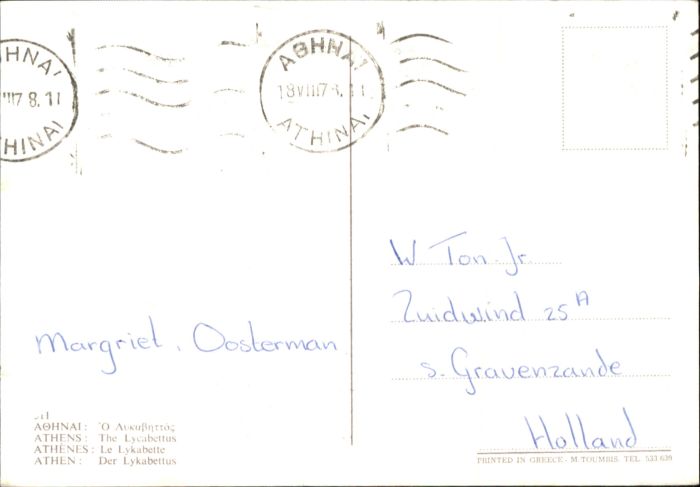 ΑΘΗΝΑΙ
18 VIII 78.11
ATHINAI
W Ton. Jr.
Zuidwind 25 A
s. Gravenzande
Holland
Margriet. Oosterman
ΑΘΗΝΑΙ: Ὁ Λυκαβηττὸς
ATHENS: The Lycabettus
ATHÈNES: Le Lykabette
ATHEN: Der Lykabettus
PRINTED IN GREECE - M. TOUMBIS. TEL. 533.639